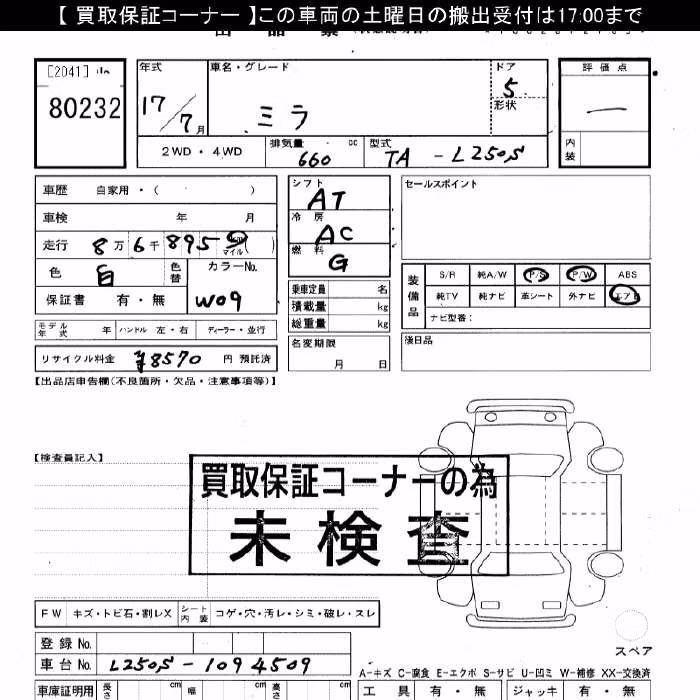 【 買取保証コーナー 】この車両の土曜日の搬出受付は17:00まで
[2041]
80232
年式
17/7月
車名・グレード
ミラ
ドア
5
形状
評価点
一
内装
2WD・4WD
排気量 cc
660
型式
TA - L250S
車歴 自家用・( )
車検 年 月
走行 8万6千895 km マイル( )
色 白 色替
カラーNo.
W09
保証書 有・無
モデル年式 年 ハンドル 左・右 ディーラー・並行
リサイクル料金 ¥8570 円 預託済
シフト
AT
冷房
AC
燃料
G
乗車定員 名
積載量 kg
総重量 kg
名変期限
月 日
セールスポイント
装備品
S/R 純A/W P/S P/W ABS
純TV 純ナビ 革シート 外ナビ エアB
ナビ型番:
後日品
【出品店申告欄(不良箇所・欠品・注意事項等)】
【検査員記入】
買取保証コーナーの為
未検査
FW キズ・トビ石・割レX シート内装 コゲ・穴・汚レ・シミ・破レ・スレ
登録No.
車台No. L250S-1094509
スペア
A-キズ C-腐食 E-エクボ S-サビ U-凹ミ W-補修 XX-交換済
車庫証明用 長さ cm 幅 cm 高さ cm
工具 有・無 ジャッキ 有・無